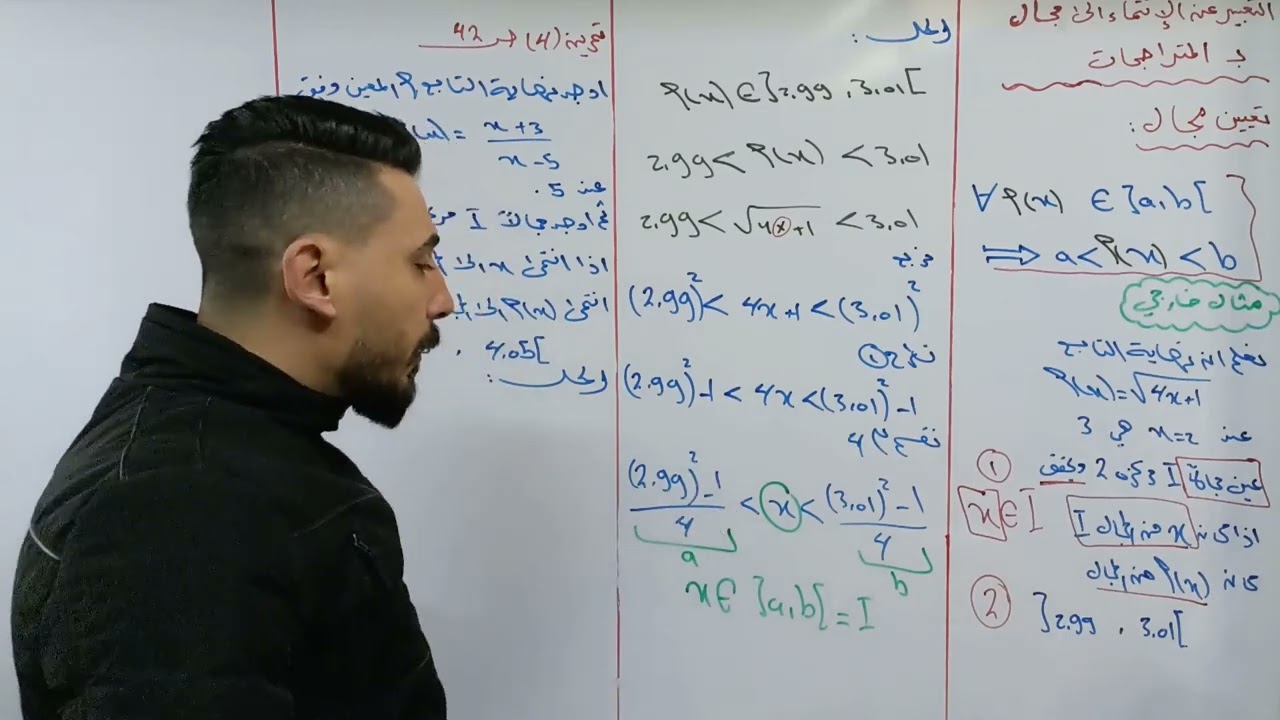 التعبير عن الإنتماء الى مجال
بـ المتراجحات
تعيين مجال:
∀ f(x) ∈ ]a,b[
⟹ a < f(x) < b
مثال خارجي
نعلم ان نهاية التابع
f(x) = √4x+1
عند x=2 هي 3
① عين مجالاً I مركزه 2 ويحقق
اذا كان x من المجال I x ∈ I
كان f(x) من المجال
② ]2.99 , 3.01[
الحل:
f(x) ∈ ]2.99 , 3.01[
2.99 < f(x) < 3.01
2.99 < √4x+1 < 3.01
نربع
(2.99)² < 4x+1 < (3.01)²
نطرح ①
(2.99)²-1 < 4x < (3.01)²-1
نقسم 4
(2.99)²-1 / 4 < x < (3.01)²-1 / 4
a b
x ∈ ]a,b[ = I
تمرين (4) ص 42
اوجد نهاية التابع f المعين وفق
= x+3 / x-5
عند 5.
ثم اوجد مجالاً I
اذا انتمى x الى
انتمى f(x) الى
4.05[ .
الحل: